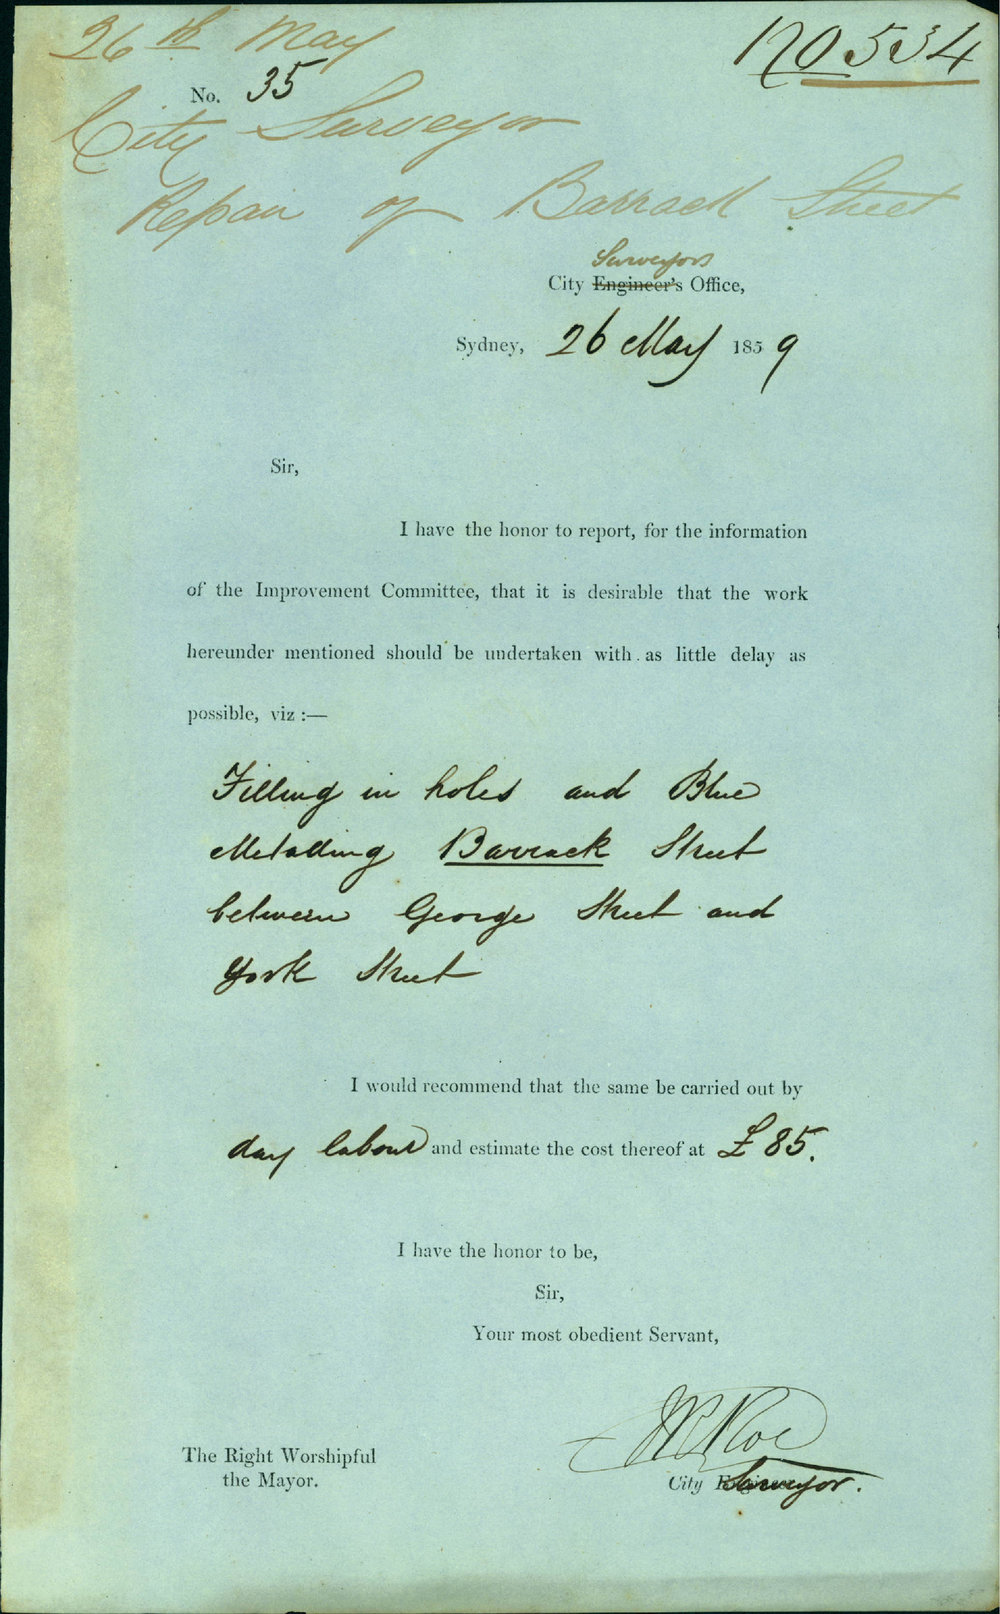 26th May
120534
No. 35
City Surveyor
Repair of Barrack Street
Surveyors
City Engineer's Office,
Sydney, 26 May 1859
Sir,
I have the honor to report, for the information
of the Improvement Committee, that it is desirable that the work
hereunder mentioned should be undertaken with as little delay as
possible, viz :—
Filling in holes and Blue
Metalling Barrack Street
between George Street and
York Street
I would recommend that the same be carried out by
day labour and estimate the cost thereof at £85.
I have the honor to be,
Sir,
Your most obedient Servant,
The Right Worshipful
the Mayor.
Roe
City Surveyor.